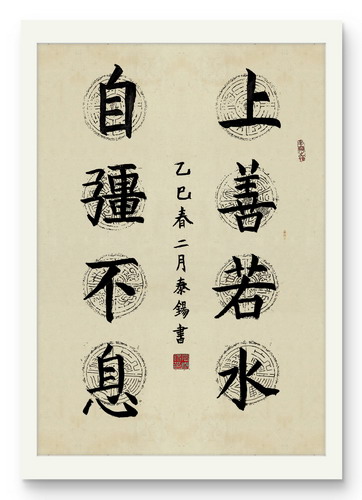 上善若水
自彊不息
乙巳春二月泰錫書